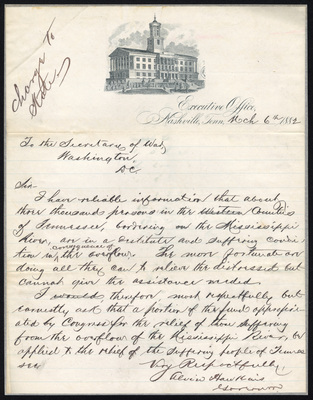 Charge to
State
Executive Office,
Nashville, Tenn, Mch 6th 1882
To the Secretary of War,
Washington,
D.C.
Sir
I have reliable information that about
three thousand persons in the Western Counties
of Tennessee, bordering on the Mississippi
River, are in a destitute and suffering condi-
tion in consequence of the overflow. The more fortunate are
doing all they can to relieve the distressed but
cannot give the assistance needed.
I would, therefore, most respectfully but
earnestly ask that a portion of the fund appropri-
ated by Congress for the relief of those suffering
from the overflow of the Mississippi River, be
applied to the relief of the suffering people of Tennes
see
Very Respectfully
Alvin Hawkins
Governor